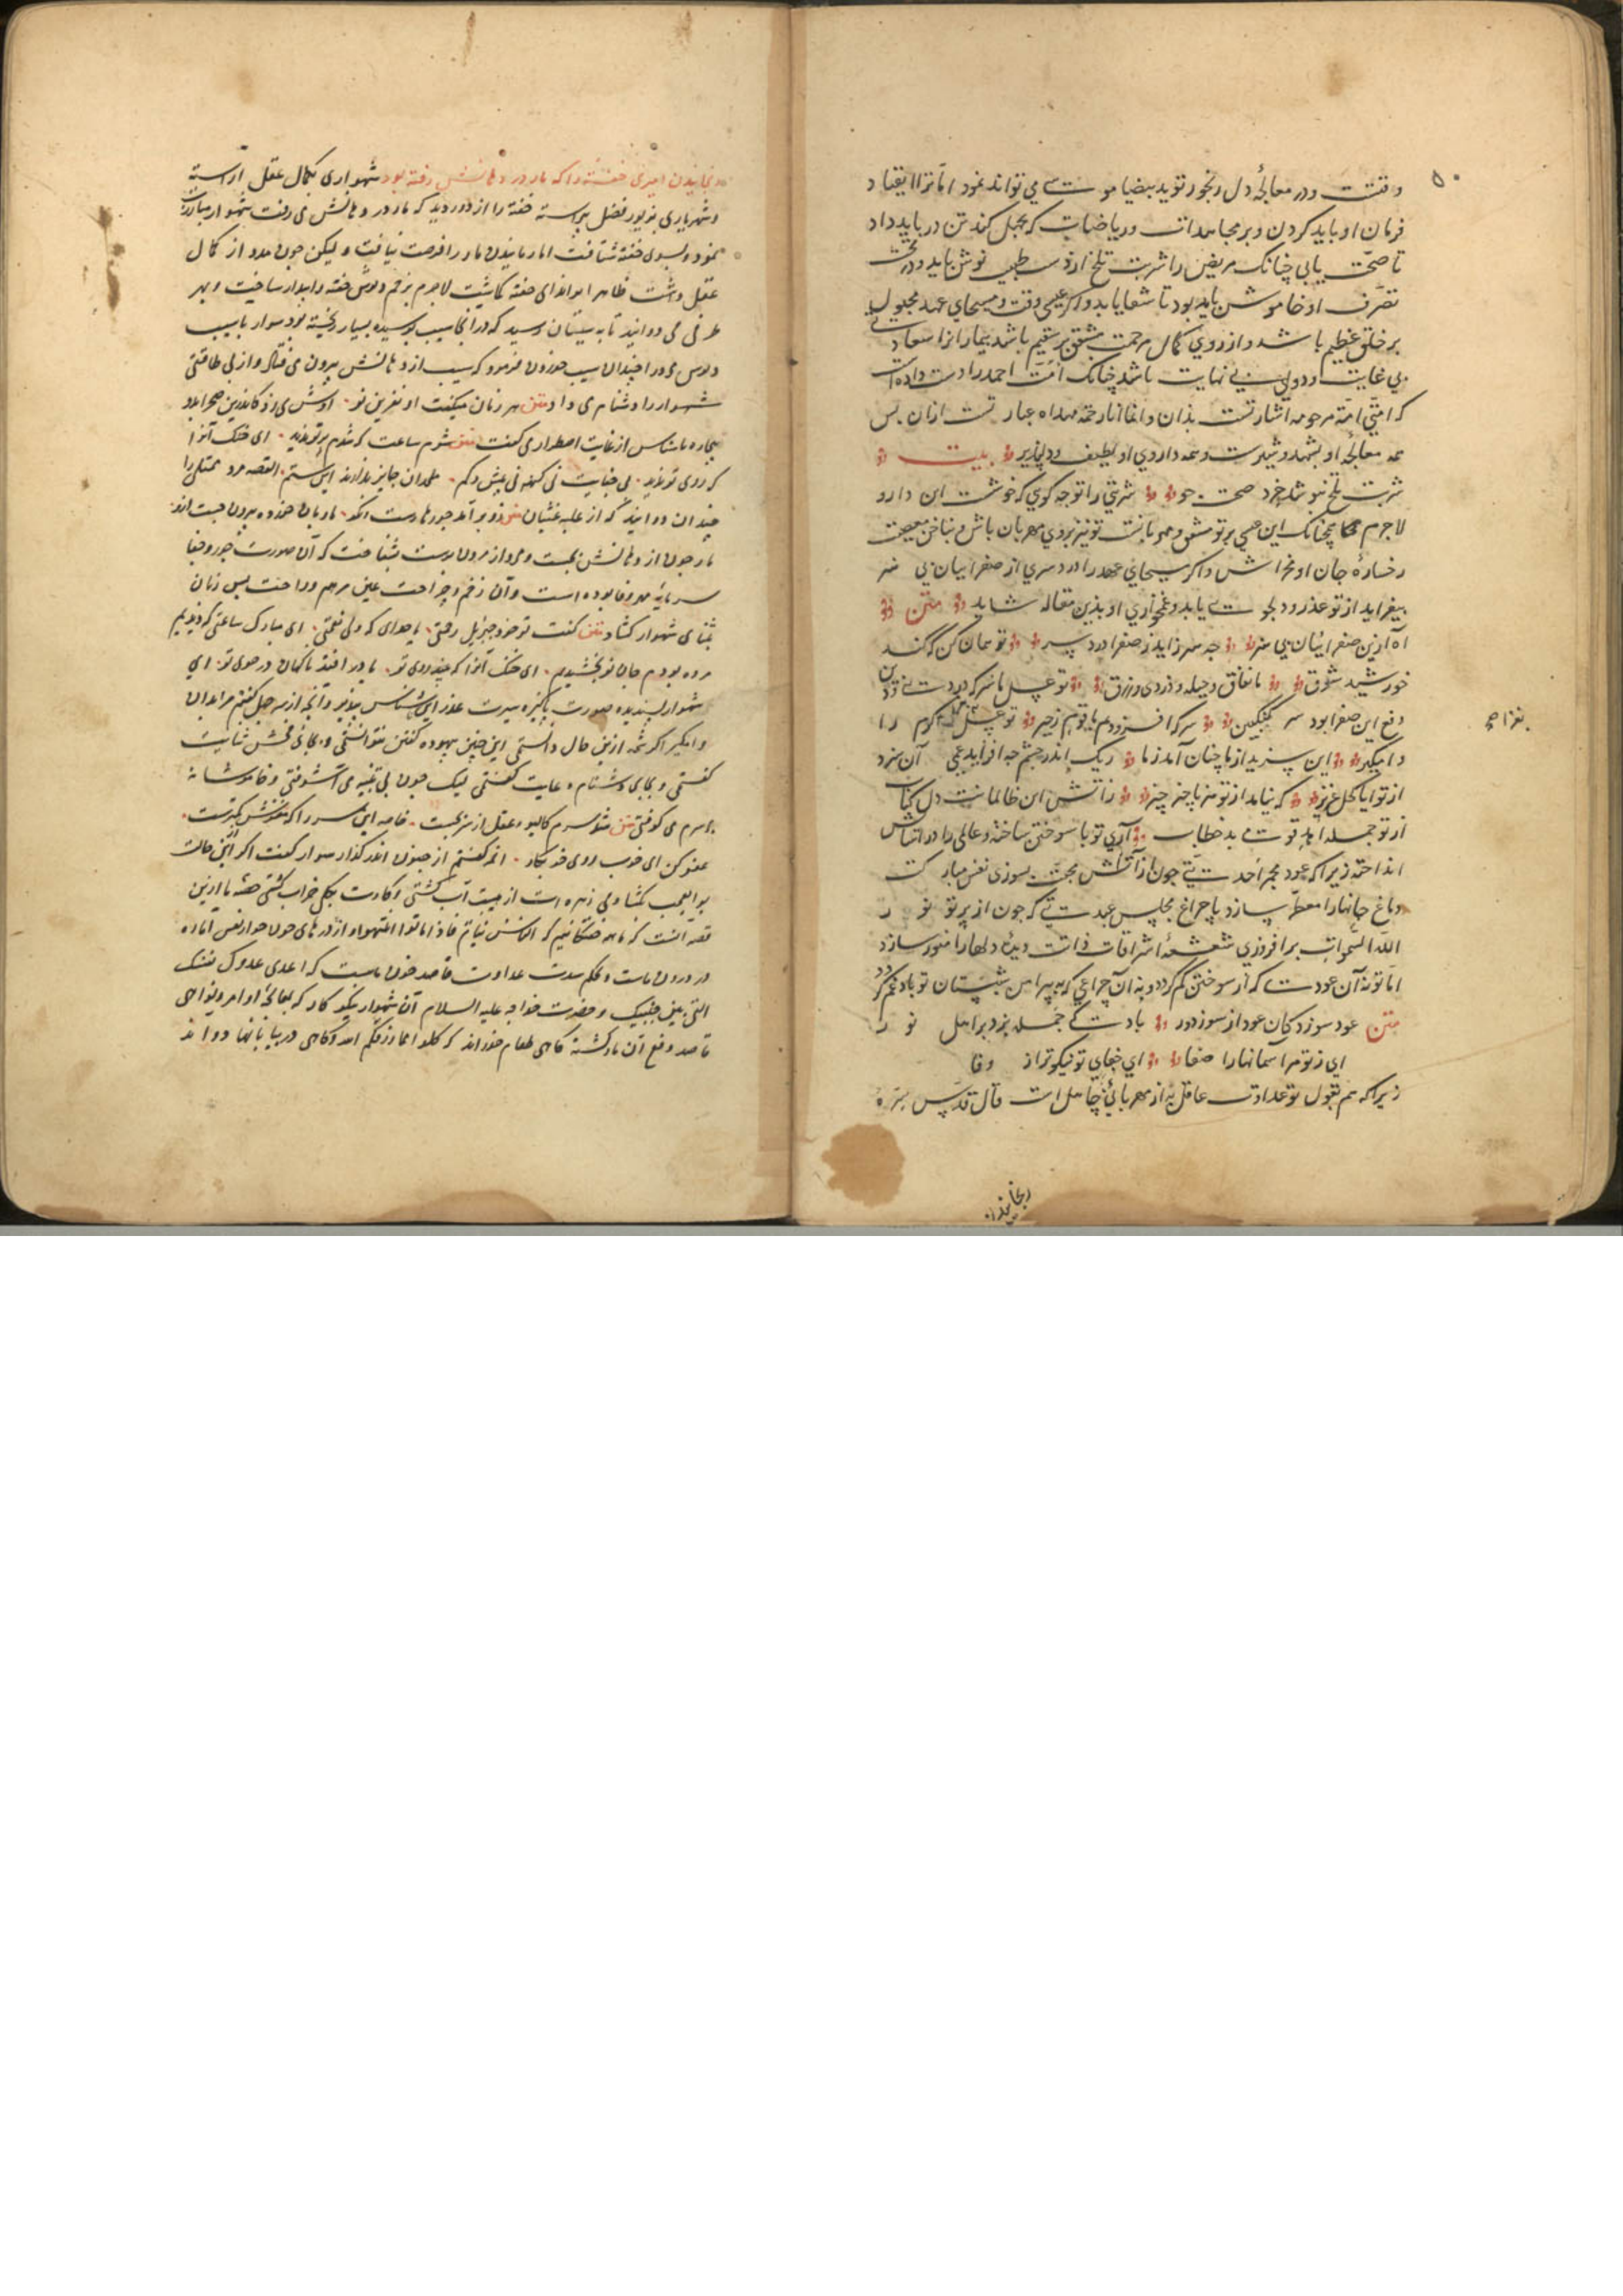 ۵۰
وقتست ودر معالجهٔ دل رنجور تو ید بیضا موسی می تواند نمود اما ترا انقیاد
فرمان او باید کردن و بر مجاهدات وریاضات که محل کند تن در باید داد
تا صحت یابی چنانک مریض را شربت تلخ از دست طبیب نوش باید و در تحت
تصرف او خاموش باید بود تا شفا یابد واکر عیسی وقت ومسیحای عهد مجبول
بر خلق عظیم باشد واز روی کمال مرحمت مشفق بر سقیم باشد بیمار انرا سعادتی
بی غایت ودولتی بی نهایت باشد چنانک امت احمد را دست داده است
که امتی امة مرحومه اشارتست بذان وانما انا رحمة مهداه عبارتست ازان پس
همه معالجهٔ او بشهد وشکرست وهمه داروی او لطیف ودلپذیر بیت
شربت تلخ ننوشد خرد صحت جو شربتی را تو چه کویی که خوشست این دارو
لاجرم همچنانک این عیسی بر تو مشفق ومهربانست تو نیز بروی مهربان باش وبناخن معصیت
رخسارهٔ جان او مخراش واکر مسیحای عهد را درد سری از صفراییان بی هنر
بیفزاید از تو عذر ودلجویی یابد وغمخواری او بذین مقاله شاید متن
آه ازین صفراییان بی هنر چه هنر زاید ز صفرا درد سر تو همان کن که کند
خورشید شرق با نفاق وحیله ودزدی وزرق تو عسل ما سرکه در دنیی ودین
دفع این صفرا بود سرکنگبین سرکه افزودیم ما قوم زحیر تو عسل بفزا کرم را
وامگیر این سزید از ما چنان آمد ز ما ریک اندر چشم چه افزاید عمی آن سزد
بفزا صح
از تو ایا کحل عزیز که بیابد از تو هر ناچیز چیز زاتش این ظالمانت دل کباب
از تو جمله اهد قومی بد خطاب آری تو با سوختن ساخته وعالمی را در آتش
انداخته زیرا که عود مجمر احدیتی چون از آتش محبت بسوزی نفس مبارکت
دماغ جانها را معطر سازد یا چراغ مجلس عبدیتی که چون از پرتو نور
الله السموات برافروزی شعشعهٔ اشراقات ذاتت دیدهٔ دلها را منور سازد
اما تو نه آن عودی که از سوختن کم کردد ونه آن چراغی که پیرامن شبستان تو باد غم کردد
متن عود سوزد کان عود از سوز دور باد کی حمله برد بر اصل نور
ای ز تو مر آسمانها را صفا ای جفای تو نیکوتر از وفا
زیرا که هم بقول تو عداوت عاقل به از مهربانی جاهل است قال قدس سره
رنجانیدن
رنجانیدن امیری خفته را که مار در دهانش رفته بود شهواری بکمال عقل آراسته
وشهریاری بزیور فضل پیراسته خفته را از دور دید که مار در دهانش می رفت شهوار مبادرت
نمود وبسوی خفته شتافت اما رمانیدن مار را فرصت نیافت ولیکن چون مدد از کمال
عقل داشت ظاهر لاجرم بزخم دبوس خفته را بیدار ساخت وبهر
طرفی می دوانید تا به سیبستان رسید که در آنجا سیب پوسیده بسیار ریخته بود سوار با سیب
دبوس می در چندان سیب خوردن فرمود که سیب از دهانش بیرون می فتاد واز بی طاقتی
شهسوار را دشنام می داد متن هر زمان میکفت او نفرین نو اوش می زد کاندرین صحرا بدو
بیچاره ناشناس از غایت اضطرار می کفت متن شوم ساعت که شدم بر تو پدید ای خنک آنرا
که روی تو ندید بی جنایت بی کنه بی بیش وکم ملحدان جایز ندارند این ستم القصه مرد ممتلی را
چندان دوانید که از غلبه غثیان متن زو برآمد خوردها زشت ونکو مار با آن خورده بیرون جست ازو
مار چون از دهانش بجست ومرد از مردن برست بشناخت که آن صورت جور وجفا
سرمایه مهر ووفا بوده است وآن زخم وجراحت عین مرهم وراحت پس زبان
بثنای شهوار کشاد متن کفت تو خود جبریل رحمتی یا خدای که ولی نعمتی ای مبارک ساعتی که دیدیم
مرده بودم جان نو بخشیدیم ای خنک آنرا که بیند روی تو یا در افتد ناکهان در کوی تو ای
شهوار پسندیده صورت پاکیزه سیرت عذر این ناشناس بپذیر وآنچه از سر جهل کفتم مرا بدان
وامکیر اکر شمهٔ ازین حال دانستمی این چنین بیهوده کفتن نتوانستمی وبجای فحش ثنایت
کفتمی وبجای دشنام دعایت کفتمی لیک چون بی تنبیه می آشوفتی وخاموشانه
بر سرم می کوفتی متن شد سرم کالیوه عقل از سر بجست خاصه این سر را که مغزش کمترست
عفو کن ای خوب روی خوب کار انچه کفتم از جنون اندر کذار سوار کفت اکر ازین حالت
بوالعجب کشادمی زهره ات از هیبت آب کشتی وکارت بکلی خراب کشتی حصه ما ازین
قصه آنست که ما همه خفتکانیم که الناس نیام فاذا ماتوا انتبهوا واژدرهای خونخوار نفس اماره
در درون ماست وبحکم شدت عداوت قاصد خون ماست که اعدی عدوک نفسک
التی بین جنبیک وحضرت خواجه علیه السلام آن شهوار نیکو کار که بمعالجهٔ اوامر ونواهی
قاصد دفع آن مار کشته کاهی طعام خوراند که کلوا مما رزقکم الله وکاهی در بیابانها دواند